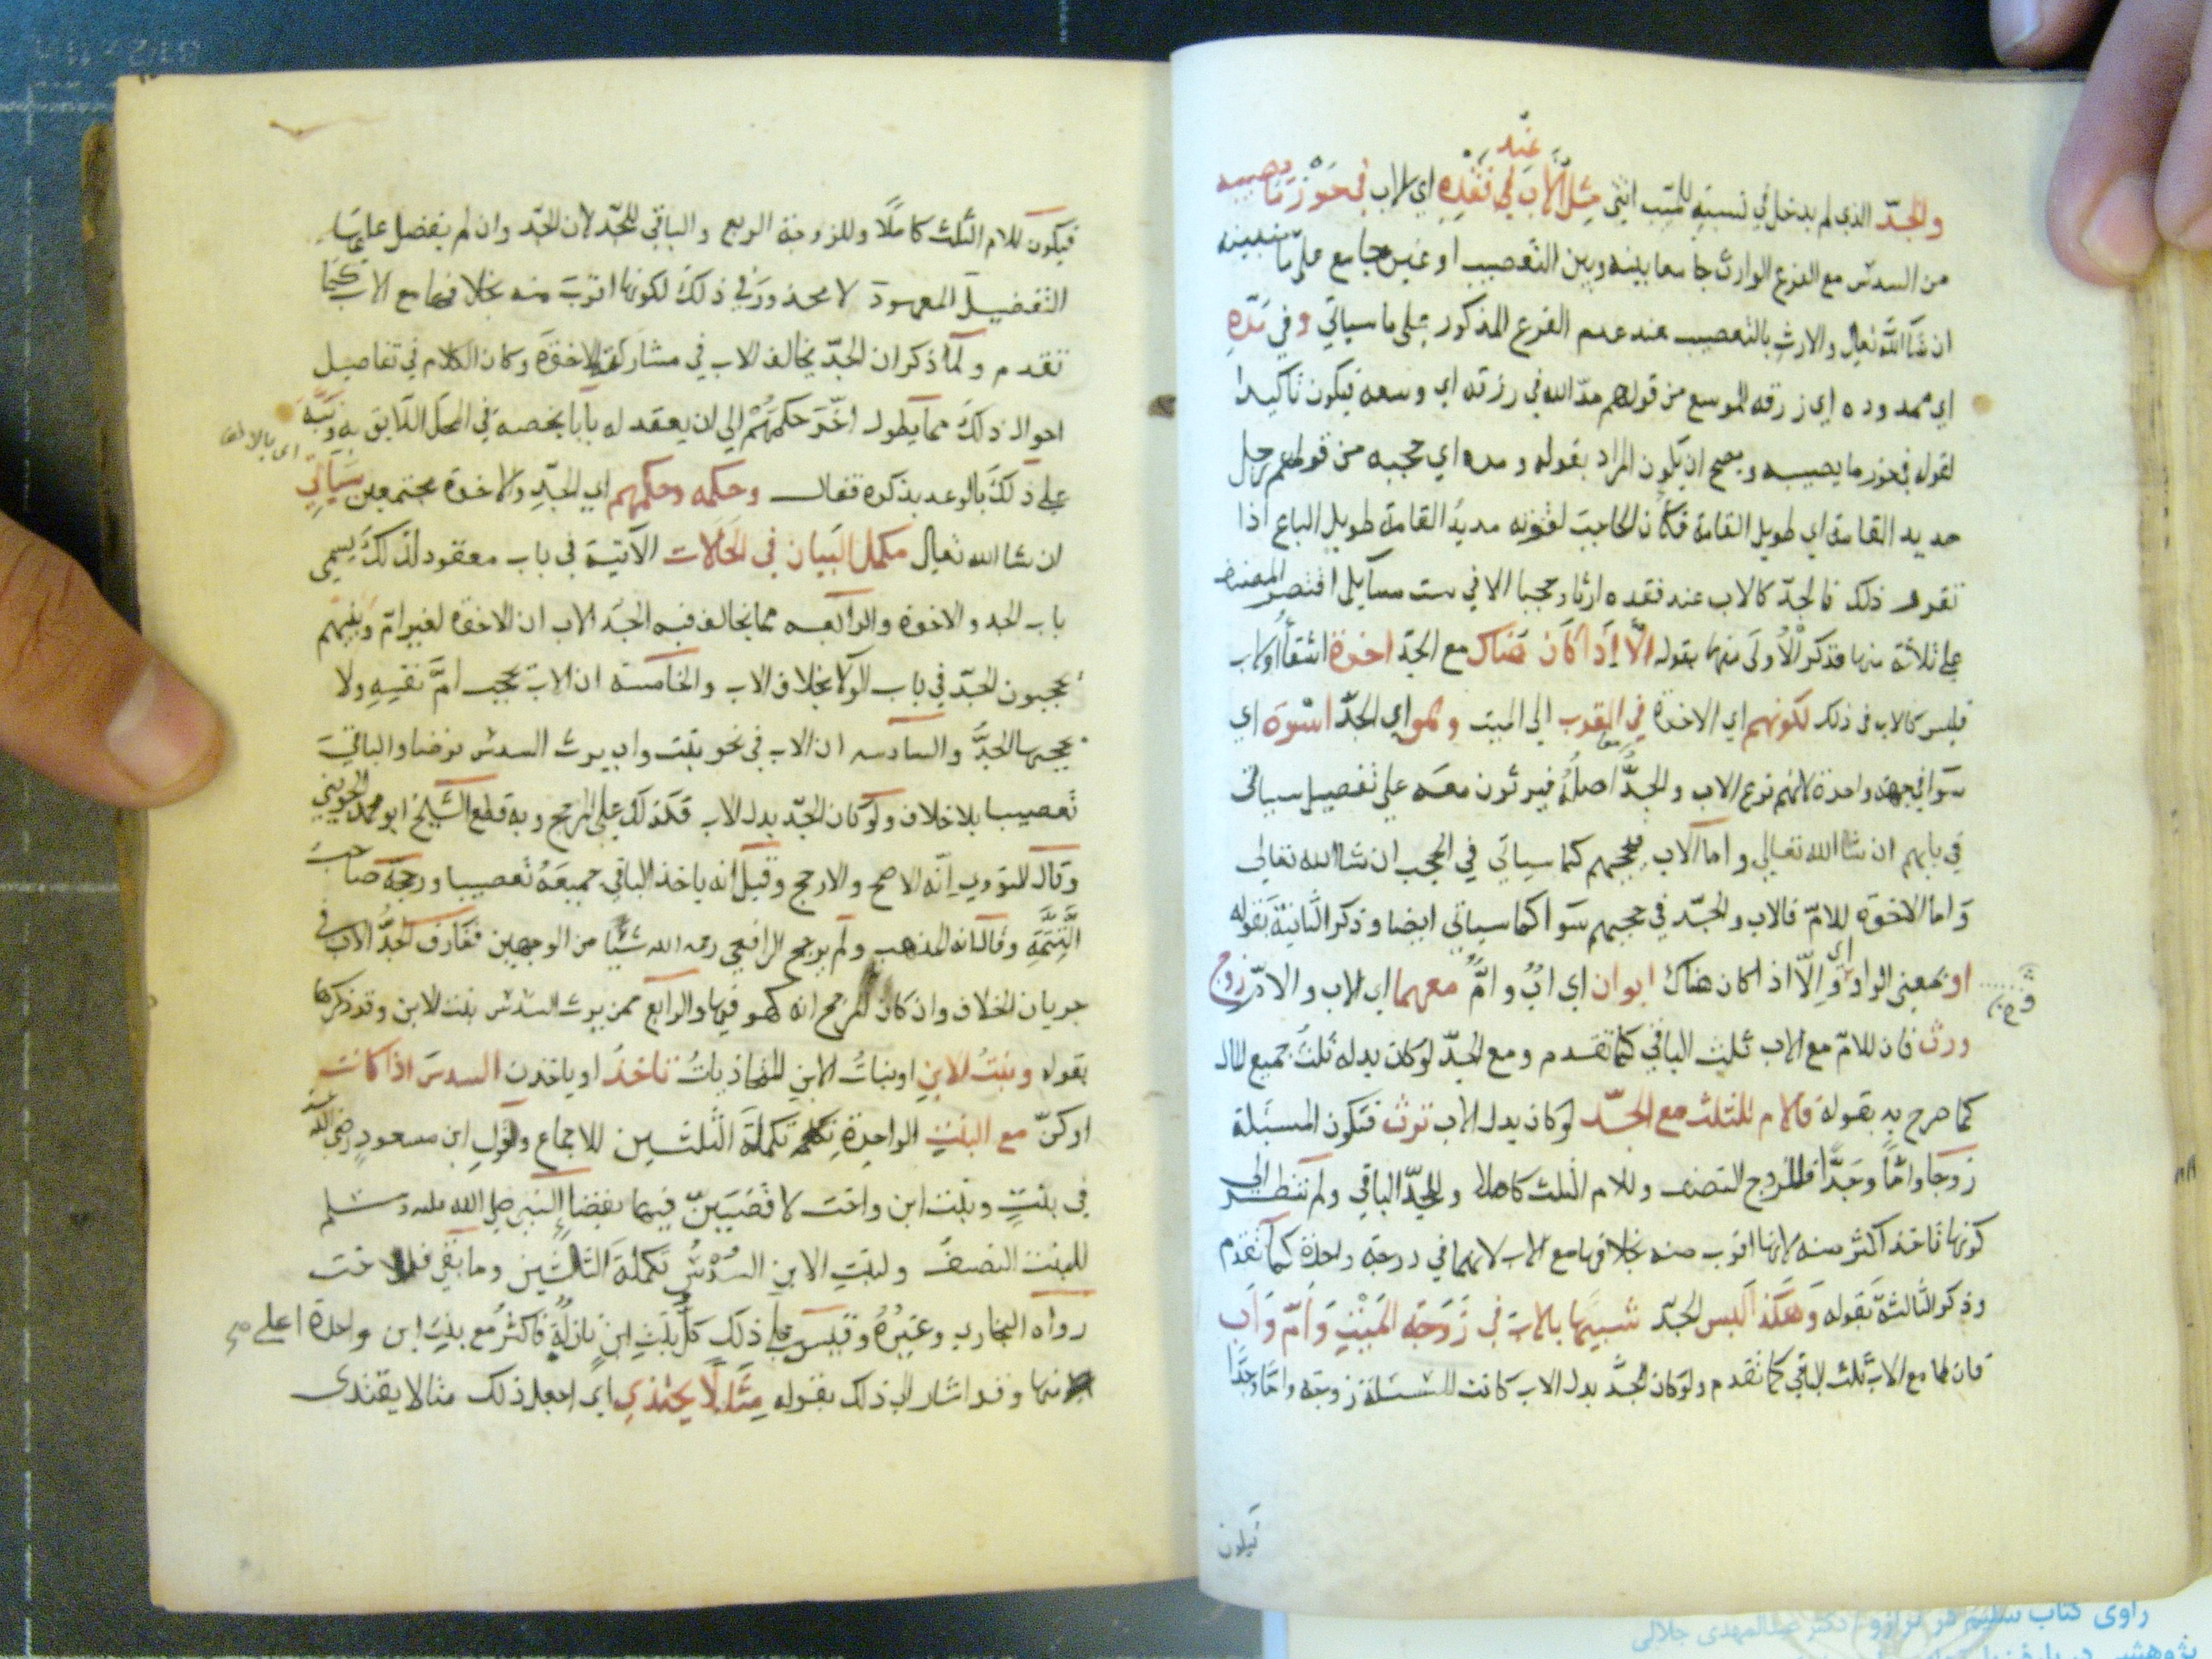 والجدّ الذي لم يدخل في نسبته للميت انثى مثل الاب في فقده اي الاب في حوز ما يصيبه
عند
من السدس مع الفرع الوارث جامعا بينه وبين التعصيب او غير جامع على ما سنبينه
ان شاء الله تعالى والارث بالتعصيب عند عدم الفرع المذكور على ما سياتي وفي مده
اي ممدوده اي رزقه الموسع من قولهم مدّ الله في رزقه اي وسعه فيكون تاكيدا
لقوله في حوز ما يصيبه ويصح ان يكون المراد بقوله ومده اي حجبه من قولهم رجل
مديد القامة اي طويل القامة فكان الحاجب لقوته مديد القامة طويل الباع اذا
تقرر ذلك فالجدّ كالاب عند فقده ارثا وحجبا الا في ست مسايل اقتصر المصنف
على ثلاثة منها فذكر الاولى منها بقوله الا اذا كان هناك مع الجدّ اخوة اشقا او لاب
فليس كالاب في ذلك لكونهم اي الاخوة في القرب الى الميت وهو اي الجدّ اسوة اي
سوا في جهة واحدة لانهم فرع الاب والجدّ اصله فيرثون معه على تفصيل سياتي
في بابهم ان شا الله تعالى واما الاب فيحجبهم كما سياتي في الحجب ان شا الله تعالى
واما الاخوة للامّ فالاب والجدّ في حجبهم سوا كما سياتي ايضا وذكر الثانية بقوله
او بمعنى الواو اي والّا اذا كان هناك ابوان اي ابٌ وامٌّ معهما اي الاب والامّ زوج
ورث فان للامّ مع الاب ثلث الباقي كما تقدم ومع الجدّ لو كان بدله ثلث جميع المال
كما صرح به بقوله فالام للثلث مع الجدّ لو كان بدل الاب ترث فتكون المسئلة
زوجا وامّا وجدّا فللزوج النصف وللام الثلث كاملا وللجدّ الباقي ولم ننظر الى
كونها تاخذ اكثر منه لانها اقرب منه بخلافها مع الاب لانهما في درجة واحدة كما تقدم
وذكر الثالثة بقوله وهكذا ليس الجدّ شبيها بالاب في زوجة الميت وامّ واب
فان لها مع الاب ثلث الباقي كما تقدم ولو كان الجدّ بدل الاب كانت المسئلة زوجة واما وجدّا
فيكون
فيكون للام الثلث كاملًا وللزوجة الربع والباقي للجدّ لان الجدّ وان لم يفضل عليها
التفضيل المعهود لا محذور في ذلك لكونها اقرب منه بخلافها مع الاب كما
تقدم ولمّا ذكر ان الجدّ يخالف الاب في مشاركته الاخوة وكان الكلام في تفاصيل
احوال ذلك مما يطول اخّر حكمهم الى ان يعقد له بابا يخصه في المحل اللايق به ونبّه
على ذلك بالوعد بذكره فقال وحكمه وحكمهم اي الجدّ والاخوة مجتمعين سياتي
ان شا الله تعالى مكمل البيان في الحالات الآتية في باب معقود لذلك يسمى
باب الجد والاخوة والرابعة مما يخالف فيه الجدّ الاب ان الاخوة لغير امّ وبنيهم
يحجبون الجدّ في باب الولا بخلاف الاب والخامسة ان الاب يحجب امّ نفسه ولا
يحجبها الجدّ والسادسه ان الاب في نحو بنت واب يرث السدس فرضا والباقي
تعصيبا بلا خلاف ولو كان الجدّ بدل الاب فكذلك على الارجح وبه قطع الشيخ ابو محمد الجويني
وقال النووي انّه الاصح والارجح وقيل انه ياخذ الباقي جميعه تعصيبا ورجحه صاحب
التتمّة وقال انه المذهب ولم يرجح الرافعي رحمه الله شيئا من الوجهين ففارق الجدّ الاب في
جريان الخلاف وان كان المرجح انه كهو فيها والرابع ممن يرث السدس بنت الابن وقد ذكرها
بقوله وبنتُ الابن او بناتُ الابن المتحاذياتُ تاخذ او ياخذن السدس اذا كانت
او كنّ مع البنت الواحدة تكملة الثلثين للاجماع ولقول ابن مسعود رضي الله عنه
في بنتٍ وبنت ابن واخت لاقضينّ فيها بقضا النبي صلى الله عليه وسلم
للبنت النصف ولبنت الابن السدس تكملة الثلثين وما بقي فللاخت
رواه البخاري وغيره وقيس على ذلك كلّ بنت ابن نازلة فاكثر مع بنت ابن واحدة اعلى صح
منها وقد اشار الى ذلك بقوله مثالًا يحتذى اي اجعل ذلك مثالا يقتدى
راوی کتاب سلیم در ترازو دکتر عبدالمهدی جلالی